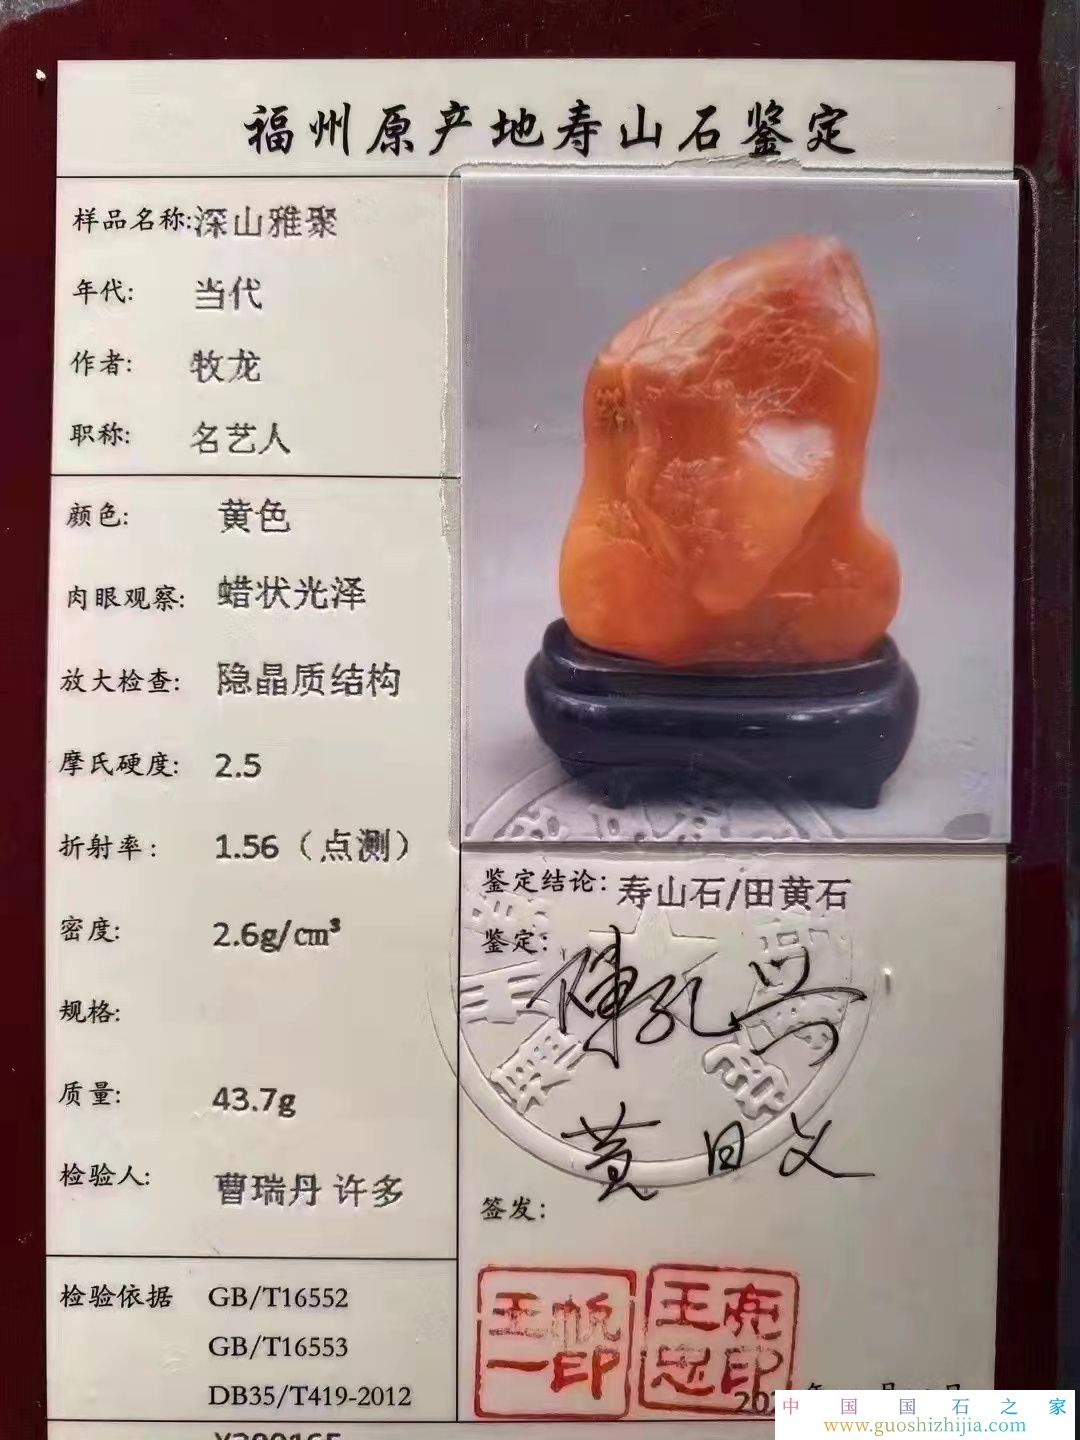 福州原产地寿山石鉴定
样品名称:深山雅聚
年代: 当代
作者: 牧龙
职称: 名艺人
颜色: 黄色
肉眼观察: 蜡状光泽
放大检查: 隐晶质结构
摩氏硬度: 2.5
折射率: 1.56（点测）
密度: 2.6g/cm³
规格:
质量: 43.7g
检验人: 曹瑞丹 许多
检验依据 GB/T16552
GB/T16553
DB35/T419-2012
鉴定结论: 寿山石/田黄石
鉴定: 陈孔兴
黄日文
签发:
王帆
一印
王亮
忠印
中国国石之家
www.guoshizhijia.com